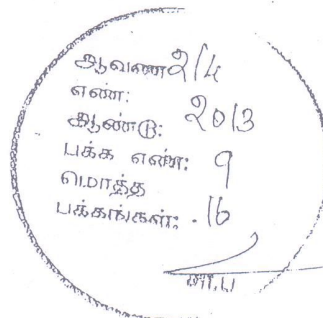 ஆவண 2/4
எண்:
ஆண்டு: 2013
பக்க எண்: 9
மொத்த
பக்கங்கள்: 16